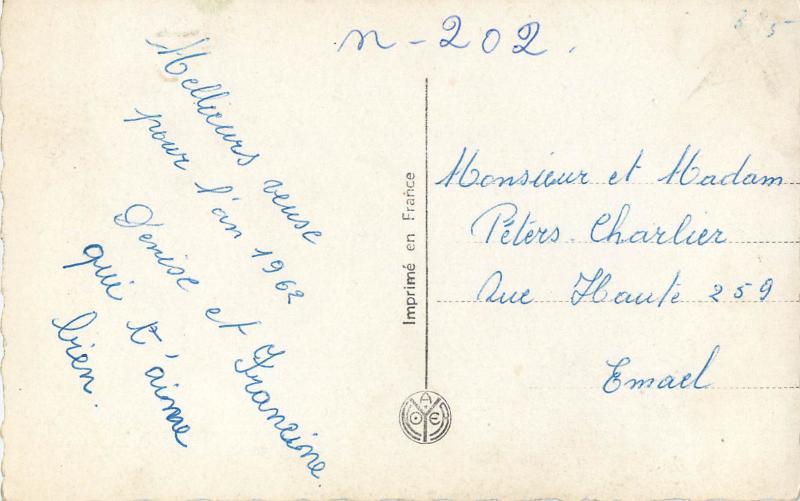 n-202.
Mellieurs veuse
pour l'an 1962
Denise et Francine
qui t'aime
bien.
Imprimé en France
Monsieur et Madam
Pétérs. Charlier
Rue Haute 259
Emael